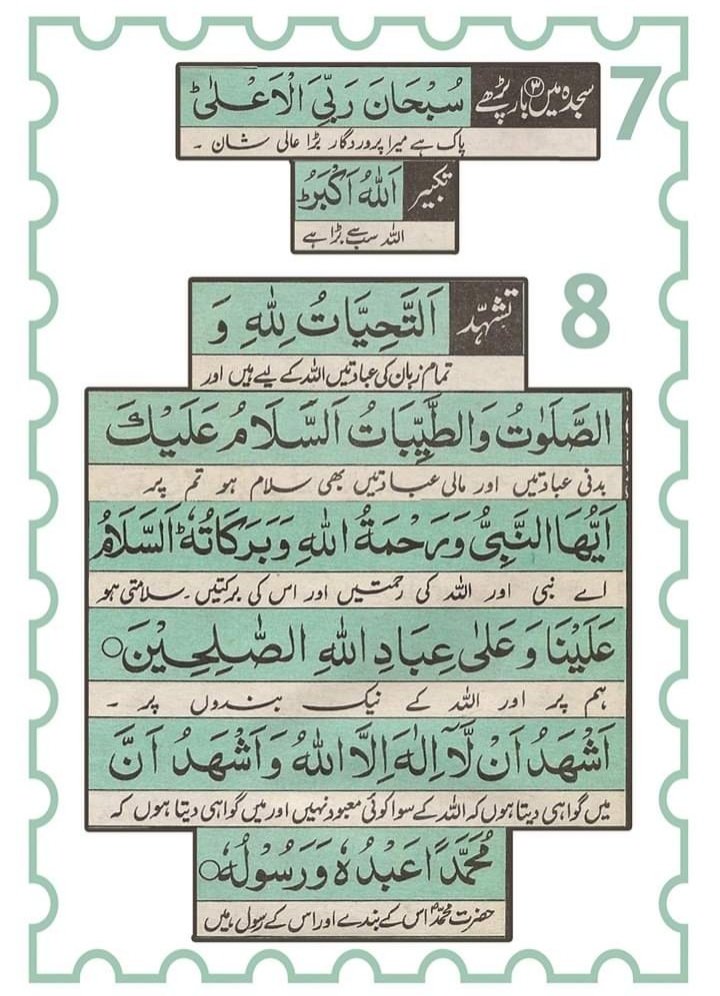 7
سجدہ میں ۳ بار پڑھے سُبْحَانَ رَبِّیَ الْاَعْلٰیؕ
پاک ہے میرا پروردگار بڑا عالی شان ۔
تکبیر اَللّٰهُ اَكْبَرُؕ
اللہ سب سے بڑا ہے
8
تشہّد اَلتَّحِیَّاتُ لِلّٰهِ وَ
تمام زبان کی عبادتیں اللہ کے لیے ہیں اور
الصَّلَوٰتُ وَالطَّیِّبَاتُ اَلسَّلَامُ عَلَیْكَ
بدنی عبادتیں اور مالی عبادتیں بھی سلام ہو تم پر
اَیُّهَا النَّبِیُّ وَرَحْمَةُ اللّٰهِ وَبَرَكَاتُهٗؕ اَلسَّلَامُ
اے نبی اور اللہ کی رحمتیں اور اس کی برکتیں ۔ سلامتی ہو
عَلَیْنَا وَعَلٰی عِبَادِ اللّٰهِ الصّٰلِحِیْنَ○
ہم پر اور اللہ کے نیک بندوں پر ۔
اَشْهَدُ اَنْ لَّاۤ اِلٰهَ اِلَّا اللّٰهُ وَاَشْهَدُ اَنَّ
میں گواہی دیتا ہوں کہ اللہ کے سوا کوئی معبود نہیں اور میں گواہی دیتا ہوں کہ
مُحَمَّدًا عَبْدُهٗ وَرَسُوْلُهٗ○
حضرت محمدؐ اس کے بندے اور اس کے رسول ہیں